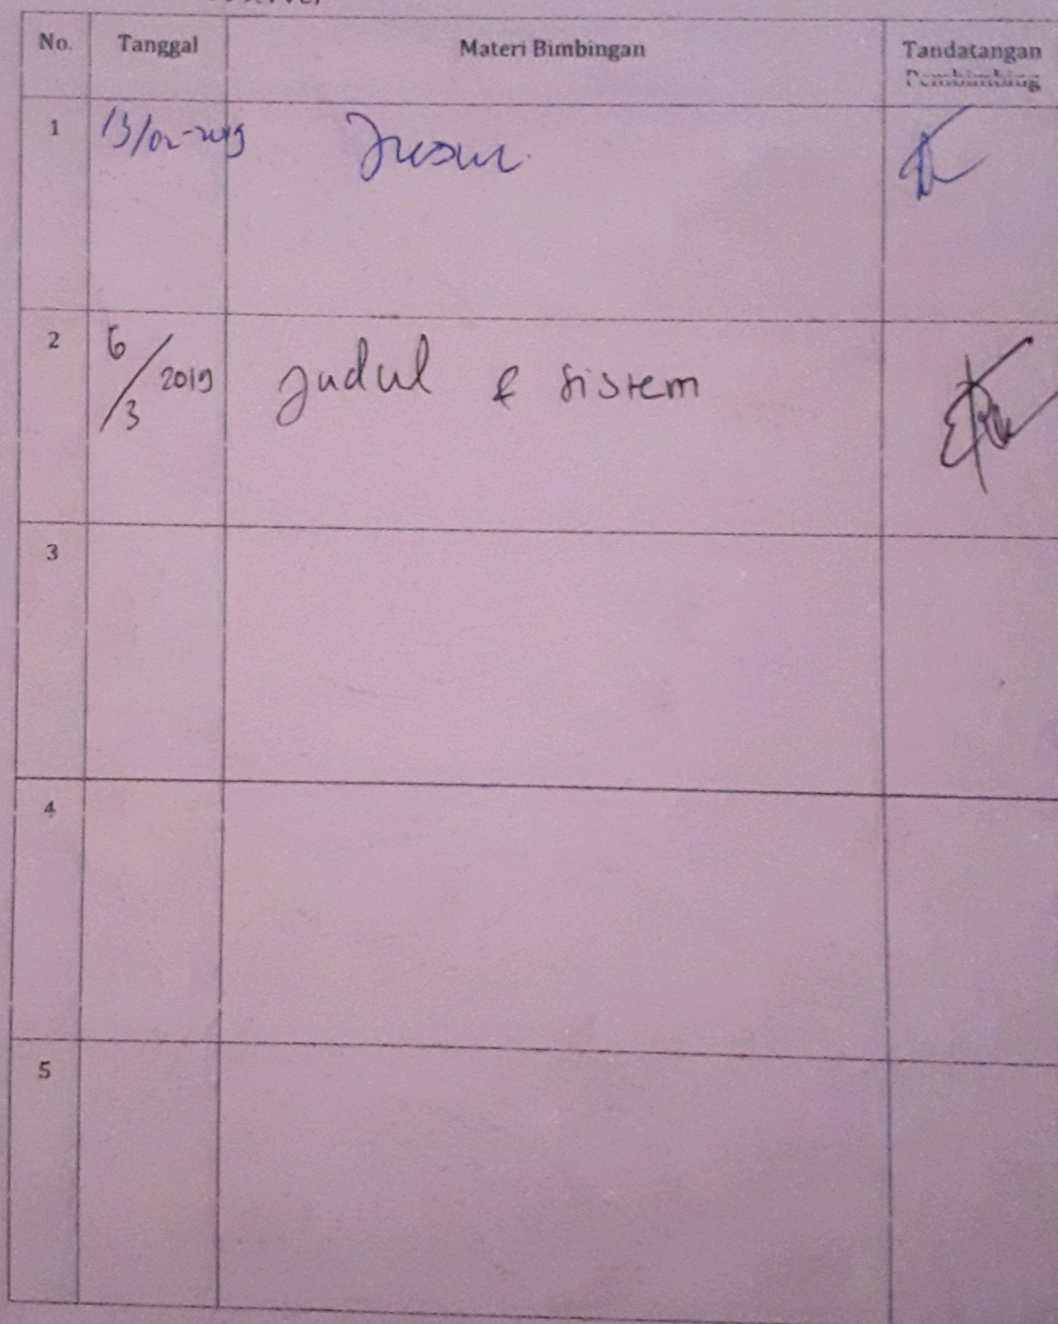 No. Tanggal Materi Bimbingan Tandatangan
Pembimbing
1
2 6/3 2019 Judul & sistem
3
4
5